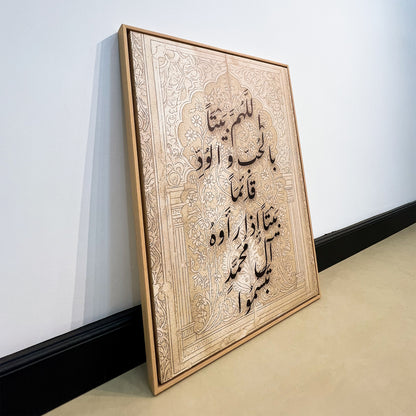 اللهم بيتًا
بالحُبّ و الوُدِّ
قائمًا
بيتًا إذا رأوهُ
آل محمدٍ
تبسّموا